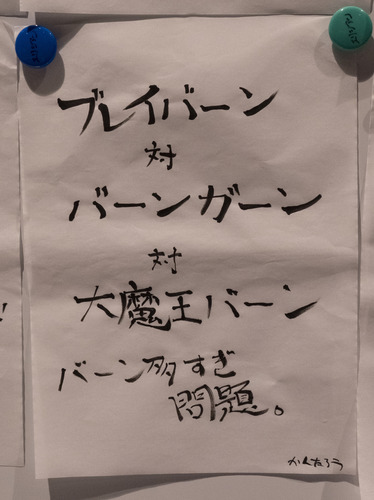 ブレイバーン
対
バーンガーン
対
大魔王バーン
バーン多すぎ
問題。
かんたろう